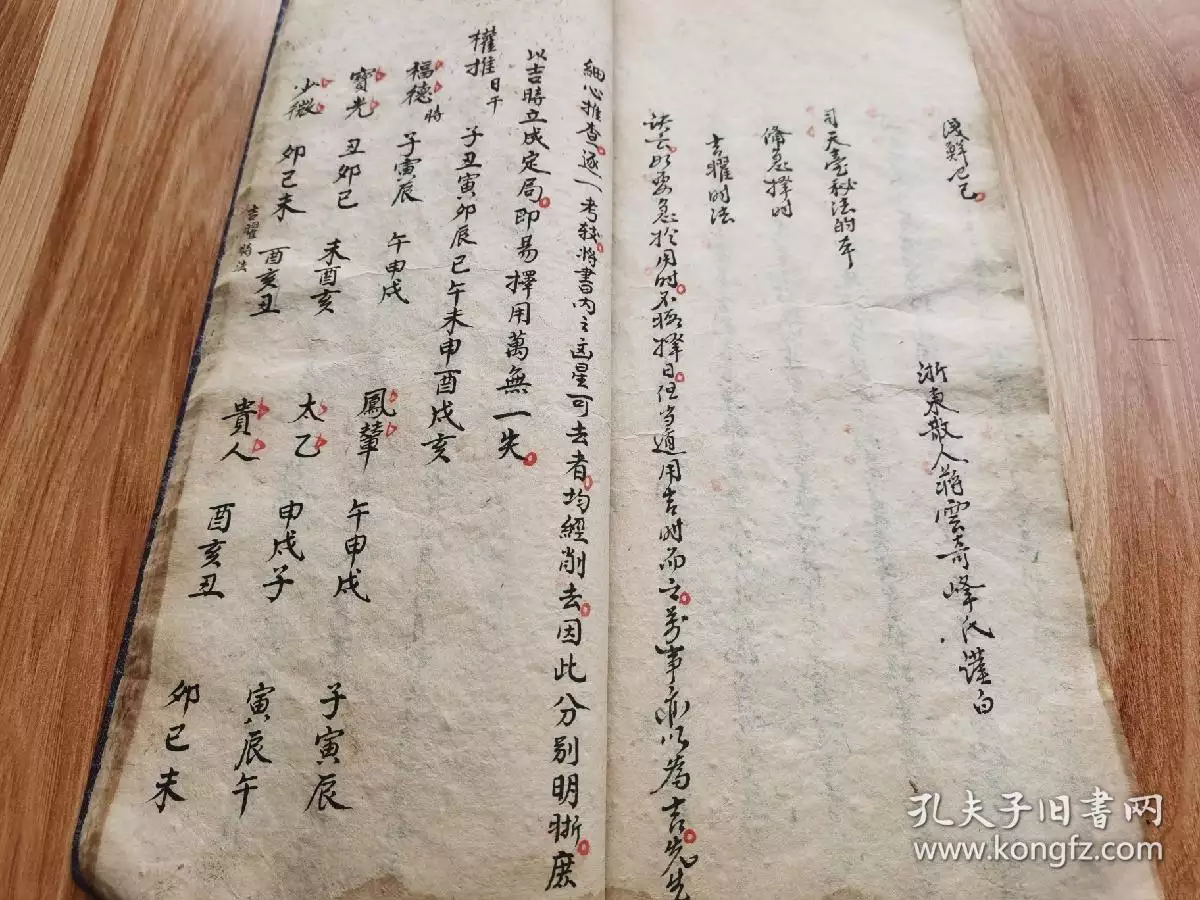 淺鮮已已
浙東散人蔣雲奇峰氏謹白
司天臺秘法的本
備急擇時
吉曜時法
訣云以要急於用時不擇日但当遁用吉時而立萬事亦以為吉先生
細心推查逐一考較將書內之凶星可去者均經削去因此分別明晣庶
以吉時立成定局即易擇用萬無一失
權推日干 子丑寅卯辰巳午未申酉戌亥
福德時 子寅辰 午申戌 鳳輦 午申戌 子寅辰
寶光 丑卯巳 未酉亥 太乙 申戌子 寅辰午
少微 卯巳未 酉亥丑 貴人 酉亥丑 卯巳未
吉曜
孔夫子旧书网
www.kongfz.com